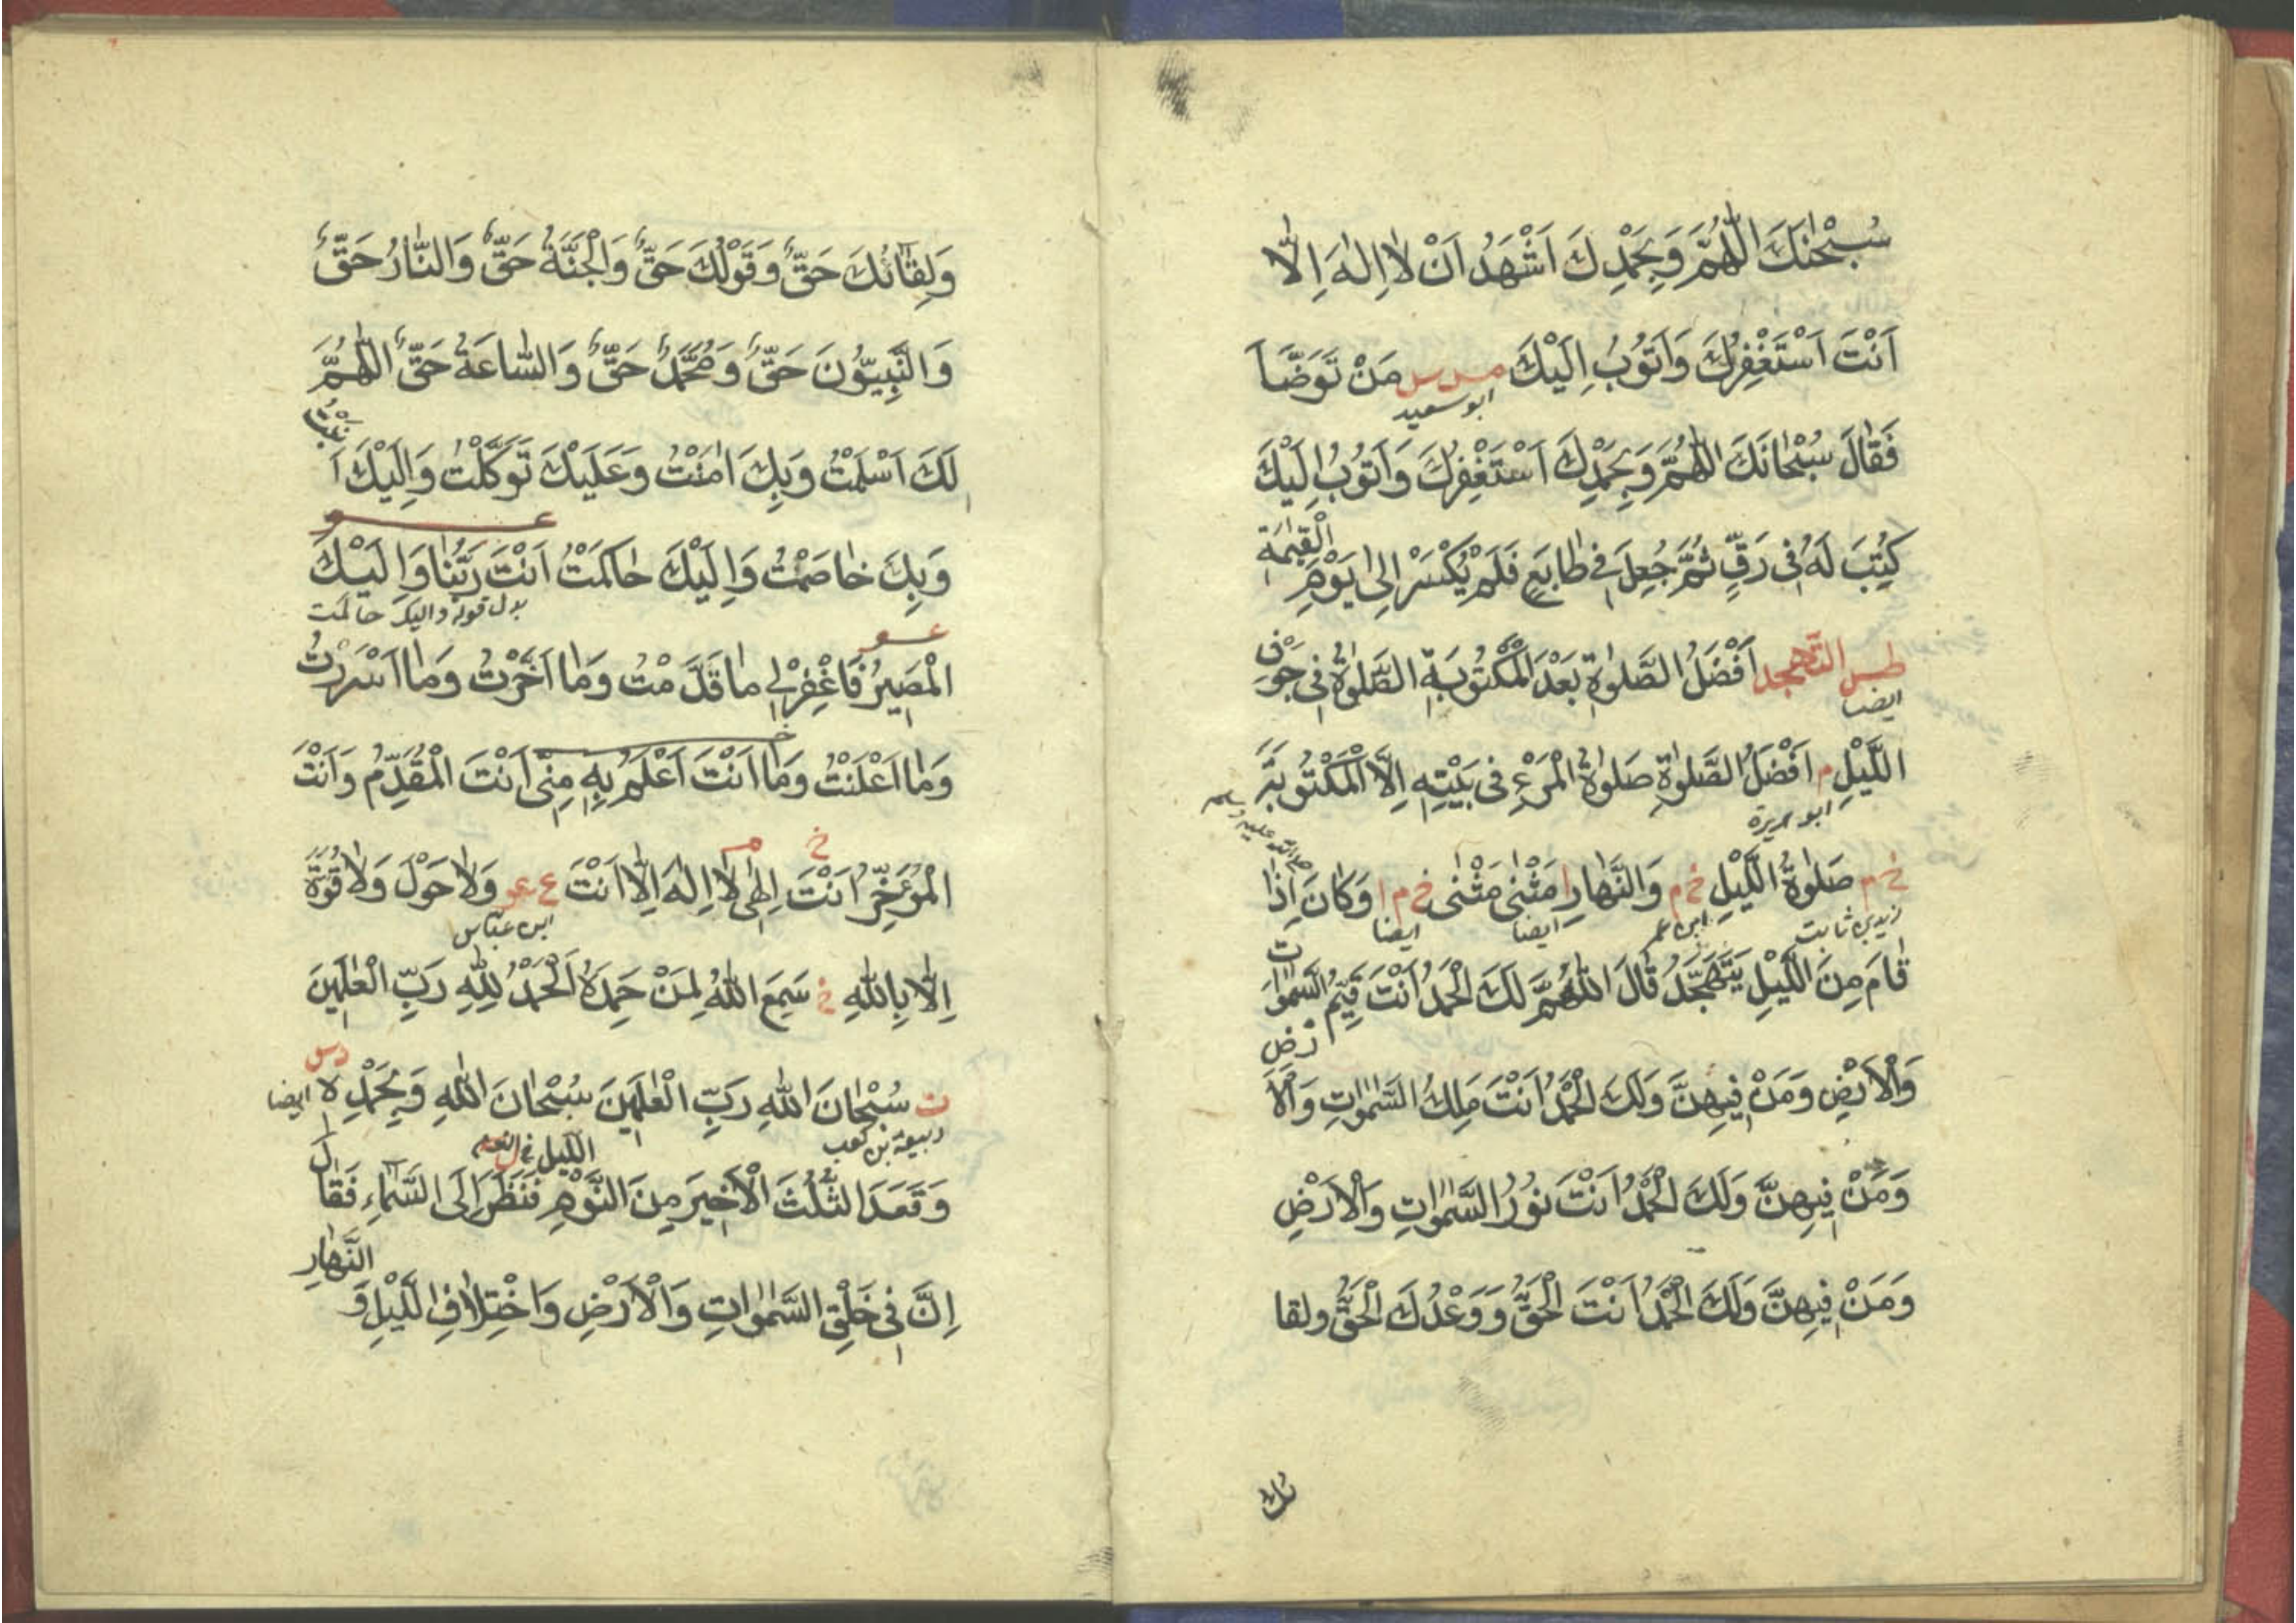 سُبْحٰنَكَ اللّٰهُمَّ وَبِحَمْدِكَ اَشْهَدُ اَنْ لَا اِلٰهَ اِلَّا
اَنْتَ اَسْتَغْفِرُكَ وَاَتُوْبُ اِلَيْكَ مس س مَنْ تَوَضَّأَ
ابو سعيد
فَقَالَ سُبْحَانَكَ اللّٰهُمَّ وَبِحَمْدِكَ اَسْتَغْفِرُكَ وَاَتُوْبُ اِلَيْكَ
كُتِبَ لَهُ فِى رَقٍّ ثُمَّ جُعِلَ فِى طَابَعٍ فَلَمْ يُكْسَرْ اِلٰى يَوْمِ الْقِيٰمَةِ
طس التهجد اَفْضَلُ الصَّلٰوةِ بَعْدَ الْمَكْتُوْبَةِ الصَّلٰوةُ فِى جَوْفِ
ايضا
اللَّيْلِ م اَفْضَلُ الصَّلٰوةِ صَلٰوةُ الْمَرْءِ فِى بَيْتِهِ اِلَّا الْمَكْتُوْبَةَ
ابو هريرة
خ م صَلٰوةُ اللَّيْلِ خ م وَالنَّهَارِ ا مَثْنٰى مَثْنٰى خ م ا وَكَانَ اِذَا
زيد بن ثابت ابن عمر ايضا ايضا
قَامَ مِنَ اللَّيْلِ يَتَهَجَّدُ قَالَ اللّٰهُمَّ لَكَ الْحَمْدُ اَنْتَ قَيِّمُ السَّمٰوَاتِ
وَالْاَرْضِ وَمَنْ فِيْهِنَّ وَلَكَ الْحَمْدُ اَنْتَ مَلِكُ السَّمٰوَاتِ وَالْاَرْضِ
وَمَنْ فِيْهِنَّ وَلَكَ الْحَمْدُ اَنْتَ نُوْرُ السَّمٰوَاتِ وَالْاَرْضِ
وَمَنْ فِيْهِنَّ وَلَكَ الْحَمْدُ اَنْتَ الْحَقُّ وَوَعْدُكَ الْحَقُّ ولقا
ئك
وَلِقَائُكَ حَقٌّ وَقَوْلُكَ حَقٌّ وَالْجَنَّةُ حَقٌّ وَالنَّارُ حَقٌّ
وَالنَّبِيُّوْنَ حَقٌّ وَمُحَمَّدٌ حَقٌّ وَالسَّاعَةُ حَقٌّ اَللّٰهُمَّ
لَكَ اَسْلَمْتُ وَبِكَ اٰمَنْتُ وَعَلَيْكَ تَوَكَّلْتُ وَاِلَيْكَ اَنَبْتُ
وَبِكَ خَاصَمْتُ وَاِلَيْكَ حَاكَمْتُ اَنْتَ رَبُّنَا وَاِلَيْكَ
بدل قوله واليك حاكمت
الْمَصِيْرُ فَاغْفِرْ لِى مَا قَدَّمْتُ وَمَا اَخَّرْتُ وَمَا اَسْرَرْتُ
وَمَا اَعْلَنْتُ وَمَا اَنْتَ اَعْلَمُ بِهِ مِنِّى اَنْتَ الْمُقَدِّمُ وَاَنْتَ
الْمُؤَخِّرُ اَنْتَ اِلٰهِى لَا اِلٰهَ اِلَّا اَنْتَ ع عو وَلَا حَوْلَ وَلَا قُوَّةَ
ابن عباس
اِلَّا بِاللّٰهِ خ سَمِعَ اللّٰهُ لِمَنْ حَمِدَهُ اَلْحَمْدُ لِلّٰهِ رَبِّ الْعٰلَمِيْنَ
ت سُبْحَانَ اللّٰهِ رَبِّ الْعٰلَمِيْنَ سُبْحَانَ اللّٰهِ وَبِحَمْدِهِ دس ايضا
ربيعة بن كعب
وَقَعَدَ الثُّلُثَ الْاَخِيْرَ مِنَ النَّوْمِ فَنَظَرَ اِلَى السَّمَاءِ فَقَالَ
اِنَّ فِى خَلْقِ السَّمٰوَاتِ وَالْاَرْضِ وَاخْتِلَافِ اللَّيْلِ وَالنَّهَارِ